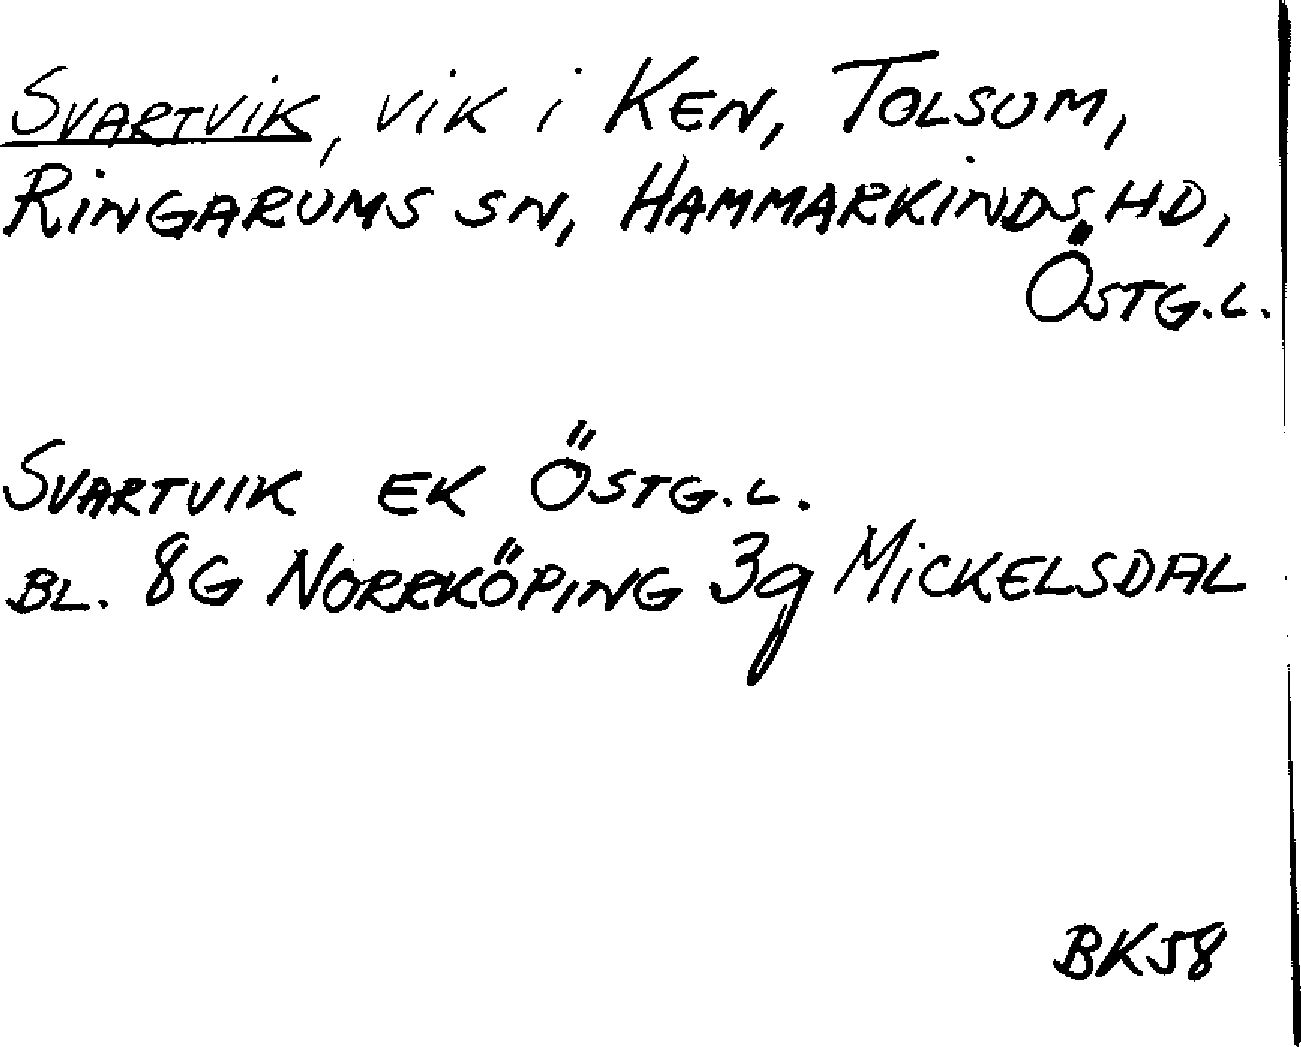 SVARTVIK, VIK i KEN, TOLSUM,
RINGARUMS SN, HAMMARKINDS HD,
ÖSTG.L.
SVARTVIK EK ÖSTG.L.
BL. 8G NORRKÖPING 3g MICKELSDAL
BK58